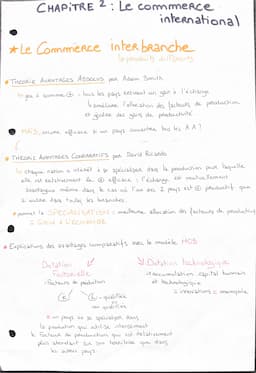 CHAPITRE 2 : Le commerce
international
★ Le Commerce interbranche
↳ produits différents
• THEORIE AVANTAGES ABSOLUS par Adam Smith
↳ jeu à somme ⊕ : tous les pays retirent un gain à l'échange
↳ améliore l'allocation des facteurs de production
et génère des gains de productivité
MAIS, encore efficace si un pays concentre tous les AA ?
• THEORIE AVANTAGES COMPARATIFS par David Ricardo
↳ chaque nation a intérêt à se spécialiser dans la production pour laquelle
elle est relativement la ⊕ efficace : l'échange est mutuellement
avantageux même dans le cas où l'un des 2 pays est ⊕ productif que
l'autre dans toutes les branches.
• permet la SPÉCIALISATION : meilleure allocation des facteurs de production
= GAIN À L'ÉCHANGE
• Explications des avantages comparatifs avec le modèle HOS
Dotation
Factorielle
: facteurs de production
K
L
qualifiée
non qualifiée
Dotation technologique
: accumulation capital humain
et technologique
innovations = monopole
un pays va se spécialiser dans
la production qui utilise intensément
le facteur de production qui est relativement
plus abondant sur son territoire que dans
les autres pays.